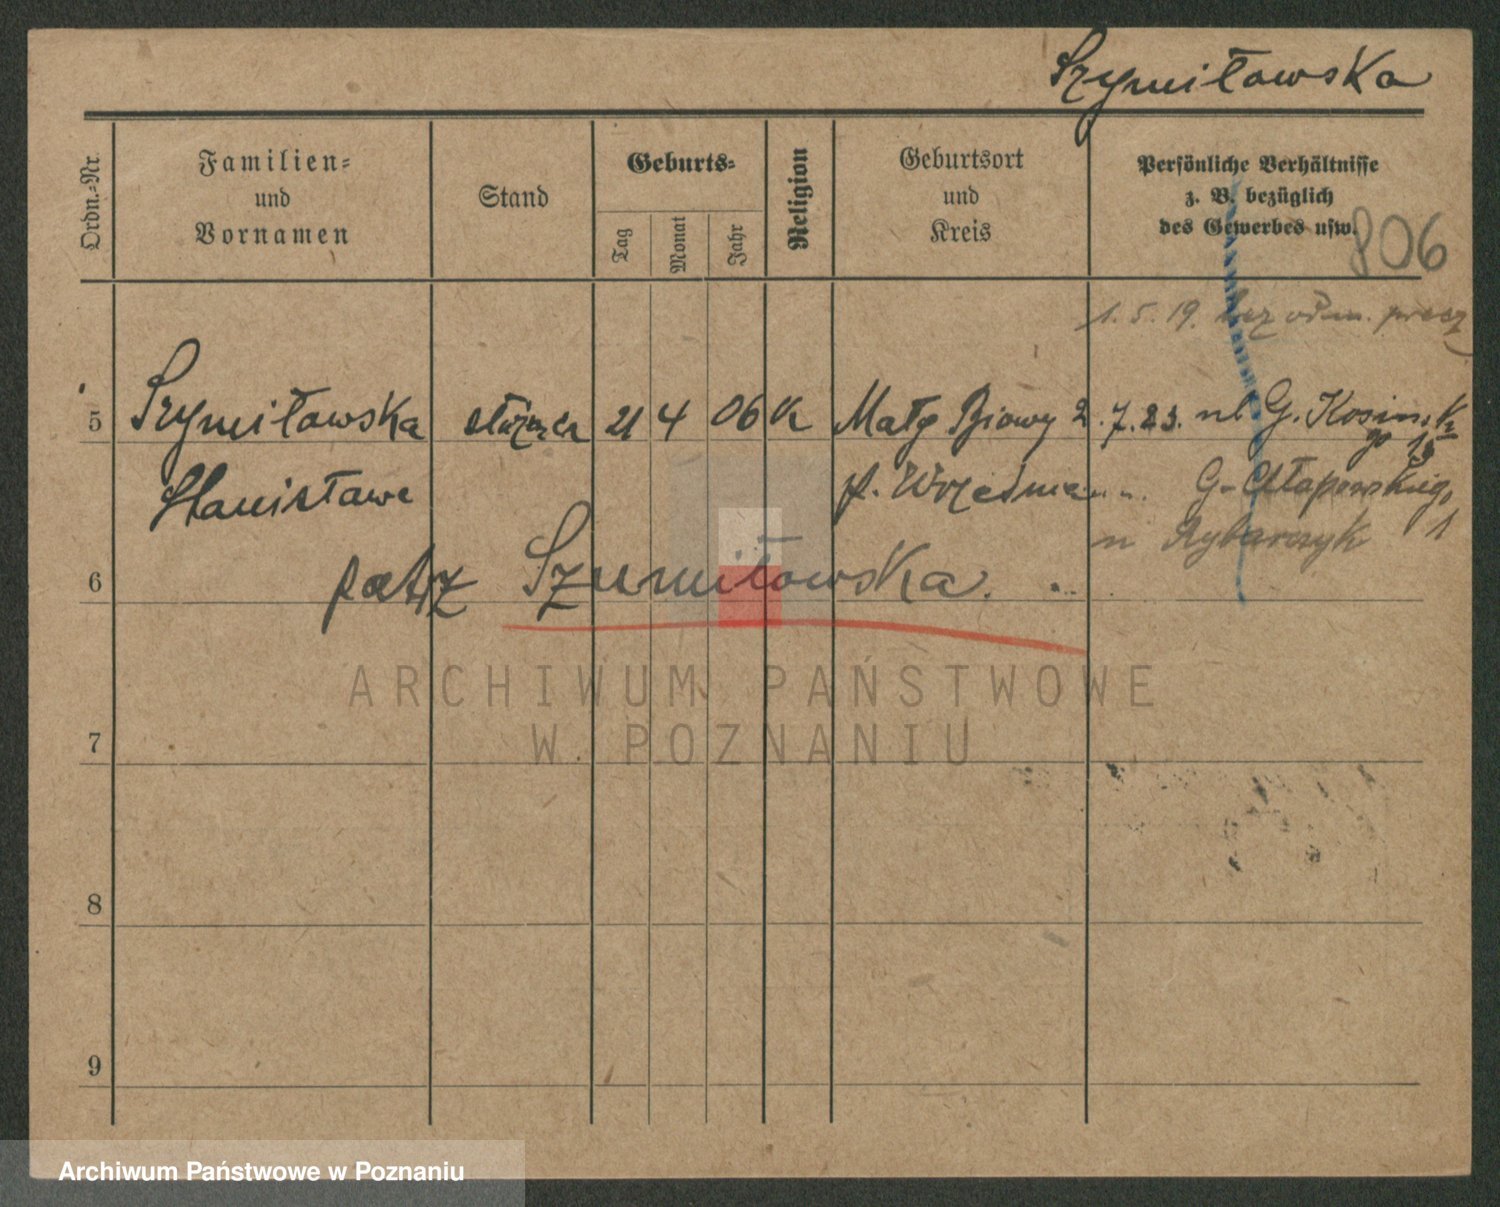 Szymiławska
Ordn.=Nr.
Familien=
und
Vornamen
Stand
Geburts=
Tag
Monat
Jahr
Religion
Geburtsort
und
Kreis
Persönliche Verhältnisse
z. B. bezüglich
des Gewerbes usw.
806
1. 5. 19. bez odm.
5 Szymiławska służąca 21 4 06 K 2. 7. 23. G. Kosinsk
go 19
Stanisława p. Września G. Chłapowskieg, 1
Rybarczyk
6 patrz Szumiławska.
ARCHIWUM PAŃSTWOWE
W POZNANIU
7
8
9
Archiwum Państwowe w Poznaniu